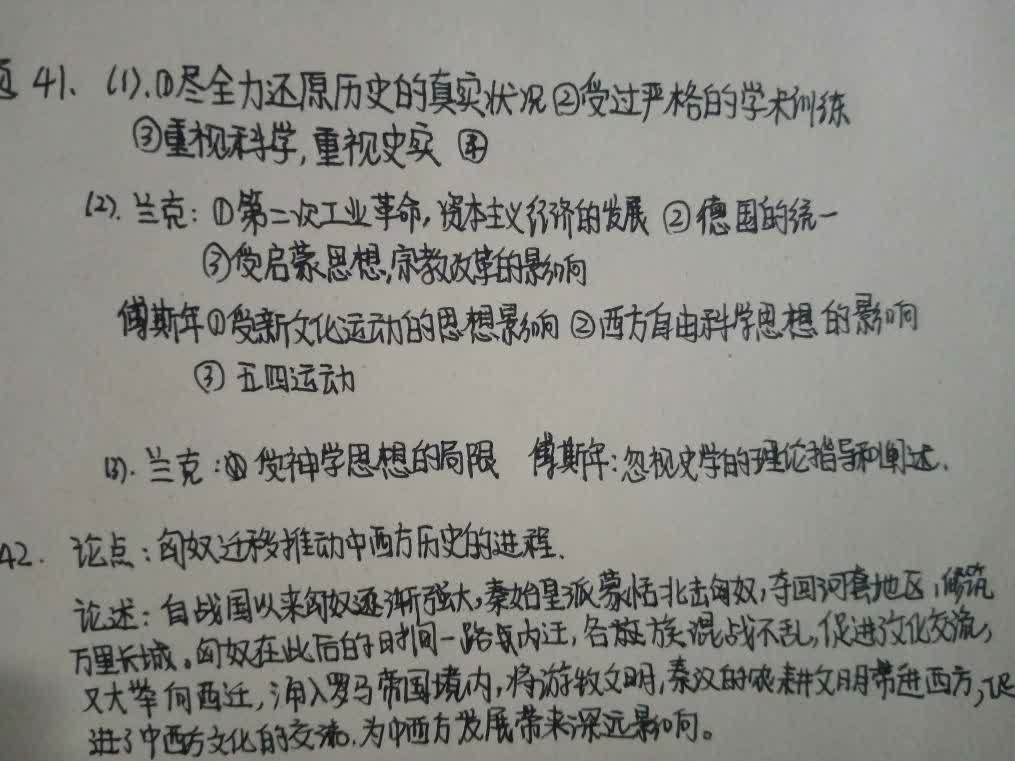 41、(1).①尽全力还原历史的真实状况②受过严格的学术训练
③重视科学,重视史实 ④
(2). 兰克:①第二次工业革命,资本主义经济的发展 ②德国的统一
③受启蒙思想,宗教改革的影响
傅斯年①受新文化运动的思想影响 ②西方自由科学思想的影响
③ 五四运动
(3). 兰克:① 受神学思想的局限 傅斯年:忽视史学的理论指导和阐述.
42. 论点:匈奴迁移推动中西方历史的进程.
论述:自战国以来匈奴逐渐强大,秦始皇派蒙恬北击匈奴,夺回河套地区,修筑
万里长城。匈奴在此后的时间一路内迁,各族混战不乱,促进文化交流,
又大举向西迁,涌入罗马帝国境内,将游牧文明,秦汉的农耕文明带进西方,促
进了中西方文化的交流.为中西方发展带来深远影响。